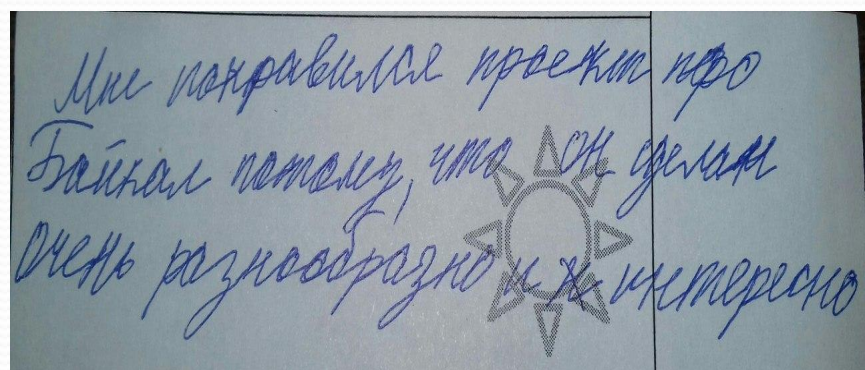 Мне понравился проект про
Байкал потому, что он сделан
очень разнообразно и интересно